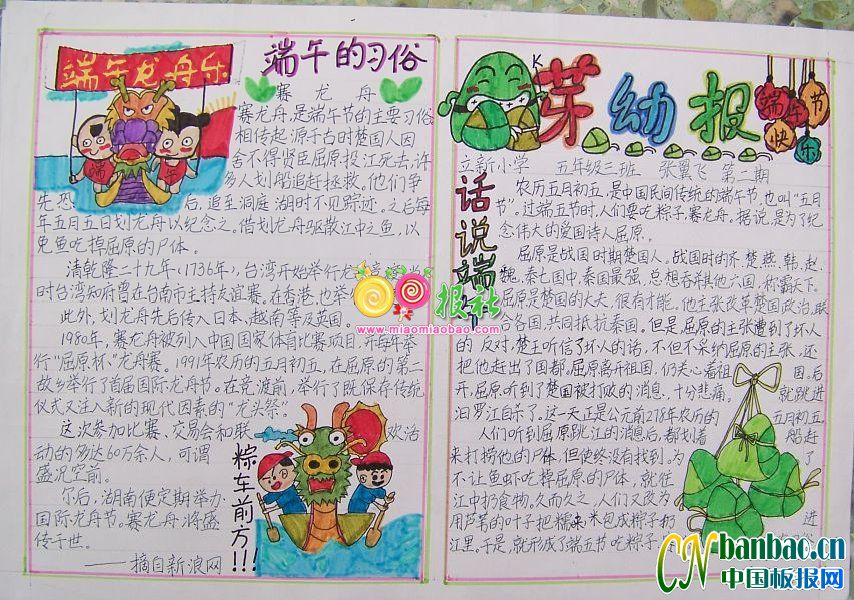 端午龙舟乐
端午
端午的习俗
赛龙舟
赛龙舟,是端午节的主要习俗
相传起源于古时楚国人因
舍不得贤臣屈原投江死去,许
多人划船追赶拯救。他们争
先恐后,追至洞庭湖时不见踪迹。之后每
年五月五日划龙舟以纪念之。借划龙舟驱散江中之鱼,以
免鱼吃掉屈原的尸体。
清乾隆二十九年(1736年),台湾开始举行龙
时台湾知府曾在台南市主持友谊赛。在香港,也举
此外,划龙舟先后传入日本、越南等及英国。
1980年,赛龙舟被列入中国国家体育比赛项目,并每年举
行"屈原杯"龙舟赛。1991年农历的五月初五,在屈原的第二
故乡举行了首届国际龙舟节。在竞渡前,举行了既保存传统
仪式又注入新的现代因素的"龙头祭。
这次参加比赛、交易会和联欢活
动的多达60万余人,可谓
盛况空前。
尔后,湖南便定期举办
国际龙舟节。赛龙舟将盛
传于世。
——摘自新浪网
粽车前方!!!
报社
www.miaomiaobao.com
K
芽幼报
端午节
快乐
立新小学 五年级三班 张翼飞 第二期
话说端午
农历五月初五,是中国民间传统的端午节,也叫"五月
节"。过端五节时,人们要吃粽子,赛龙舟。据说,是为了纪
念伟大的爱国诗人屈原。
屈原是战国时期楚国人。战国时的齐、楚、燕、韩、赵、
魏、秦七国中,秦国最强,总想吞并其他六国,称霸天下。
屈原是楚国的大夫,很有才能。他主张改革楚国政治,联
合各国,共同抵抗秦国。但是,屈原的主张遭到了坏人
的反对,楚王听信了坏人的话,不但不采纳屈原的主张,还
把他赶出了国都。屈原离开祖国,仍关心着祖国。后
开,屈原听到了楚国被打败的消息,十分悲痛。就跳进
汨罗江自杀了。这一天正是公元前278年农历的五月初五。
人们听到屈原跳江的消息后,都划着船赶了
来打捞他的尸体,但使终没有找到。为了
不让鱼虾吃掉屈原的尸体,就往
江中扔食物。久而久之,人们又改为
用芦苇的叶子把糯米包成粽子扔进
江里。于是,就形成了端五节吃粽子、
CNbanbao.cn
中国板报网